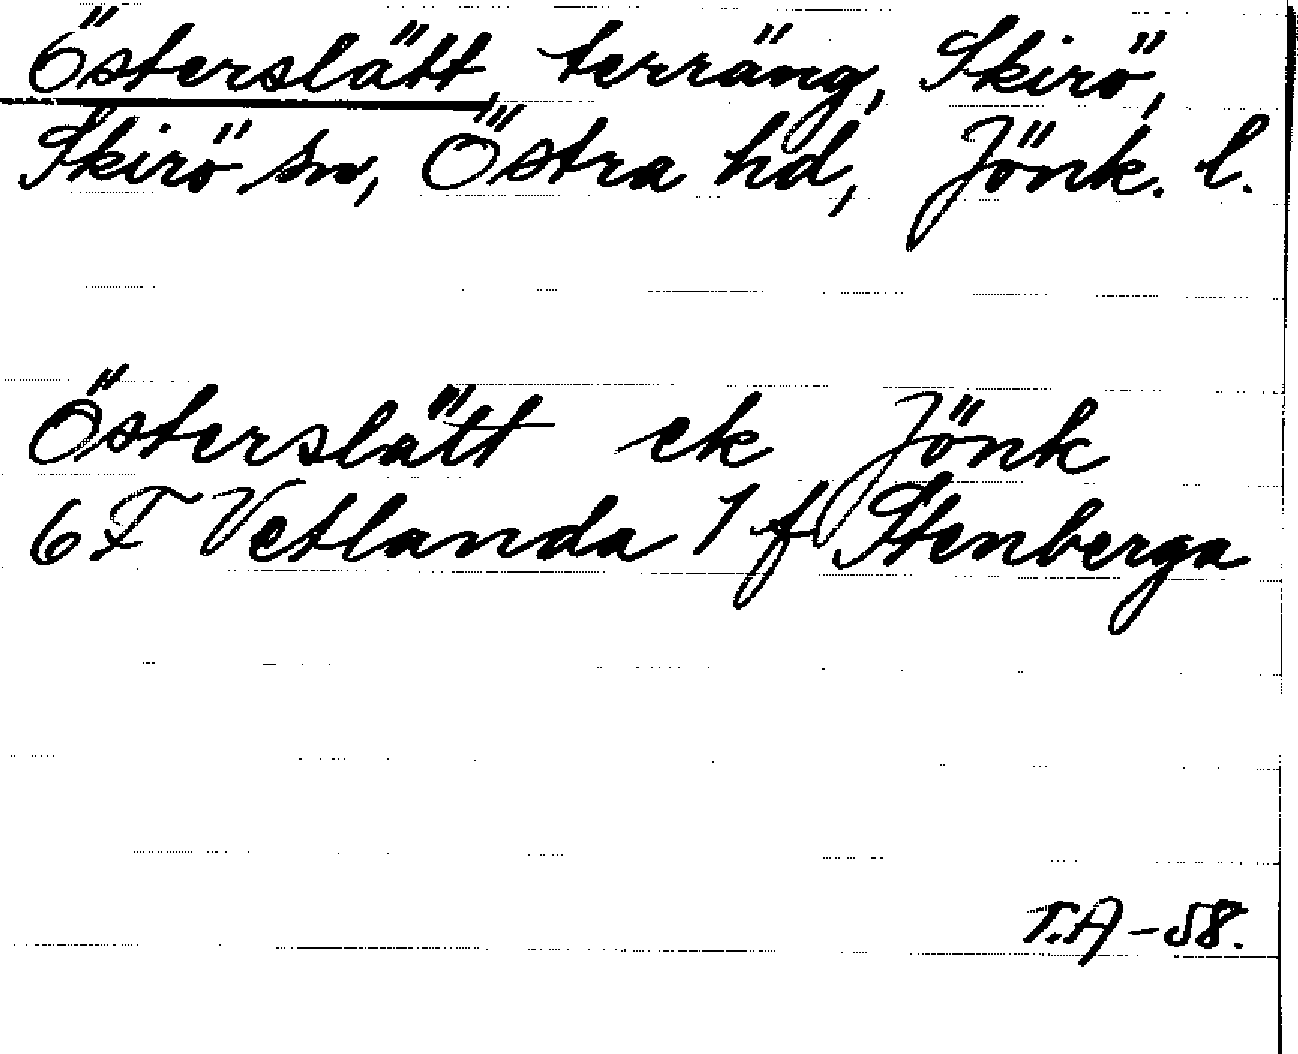 Österslätt, terräng, Skirö,
Skirö sn, Östra hd, Jönk. l.
Österslätt ek Jönk
6 F Vetlanda 1 f Stenberga
T.A -58.